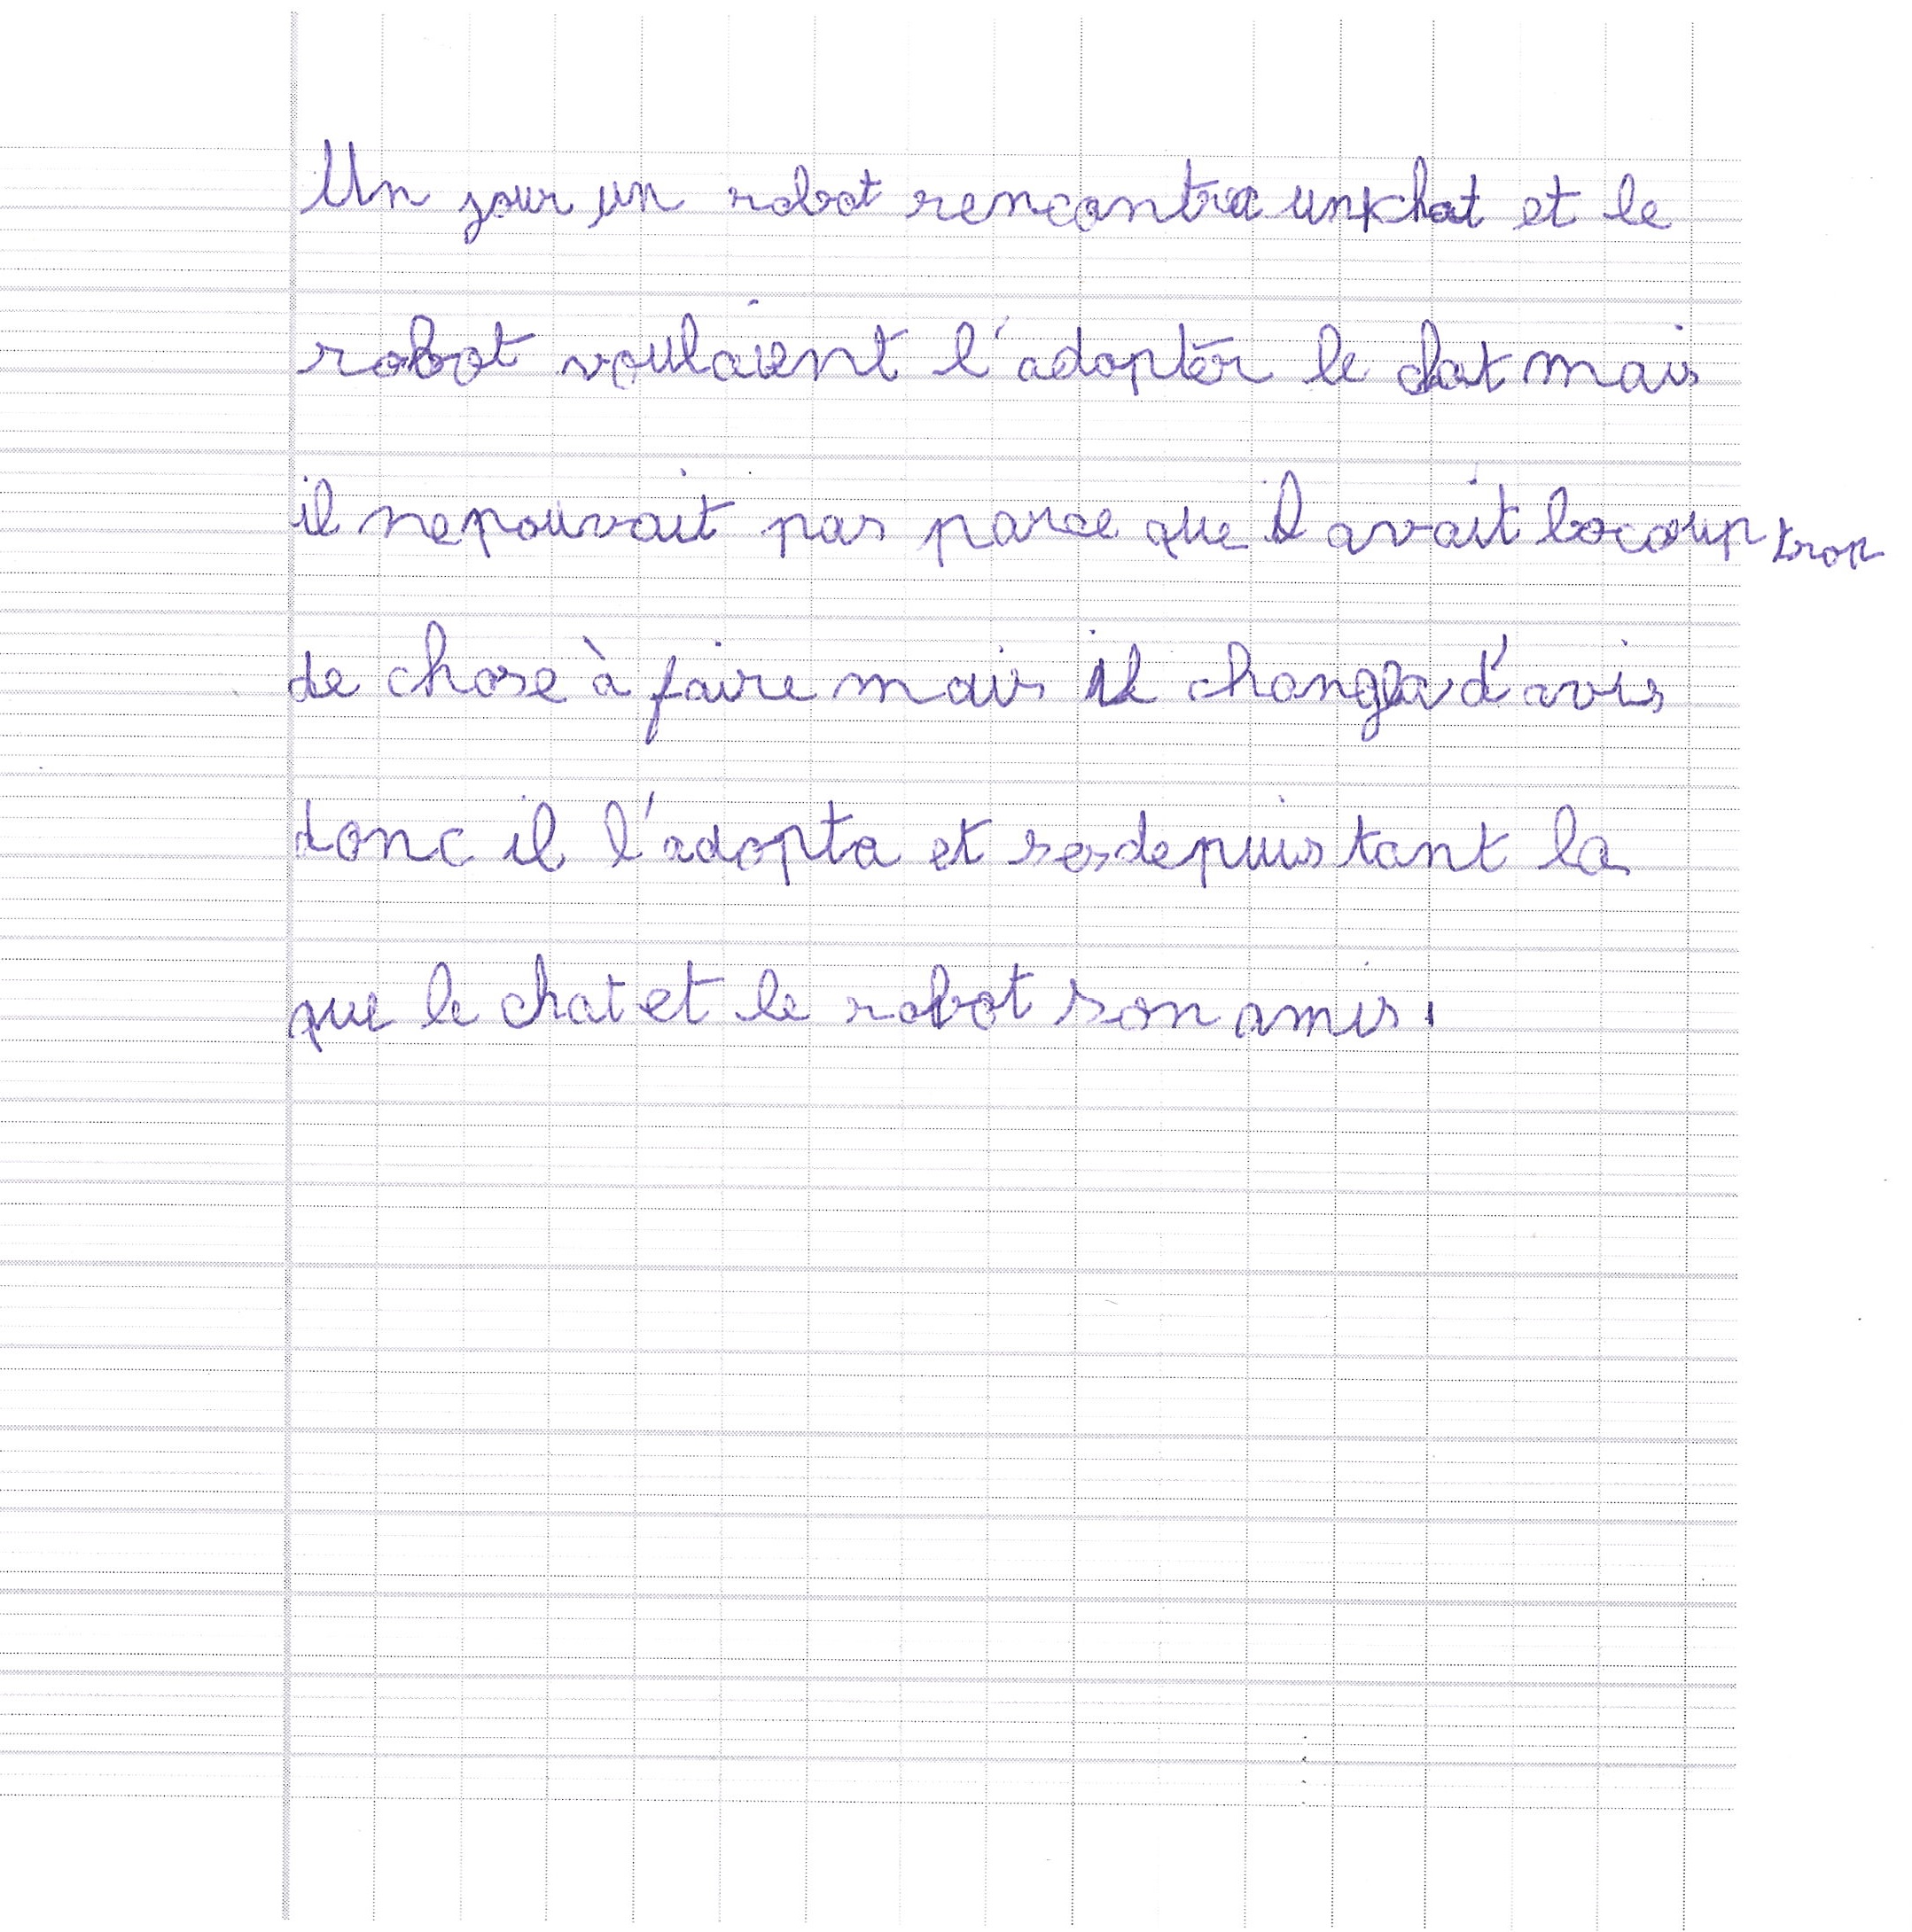 Un jour un robot rencontra un chat et le
robot voulaient l'adopter le chat mais
il ne pouvait pas parce que il avait bocoup trop
de chose à faire mais il changa d'avis
donc il l'adopta et ses depuis tant la
que le chat et le robot son amis.